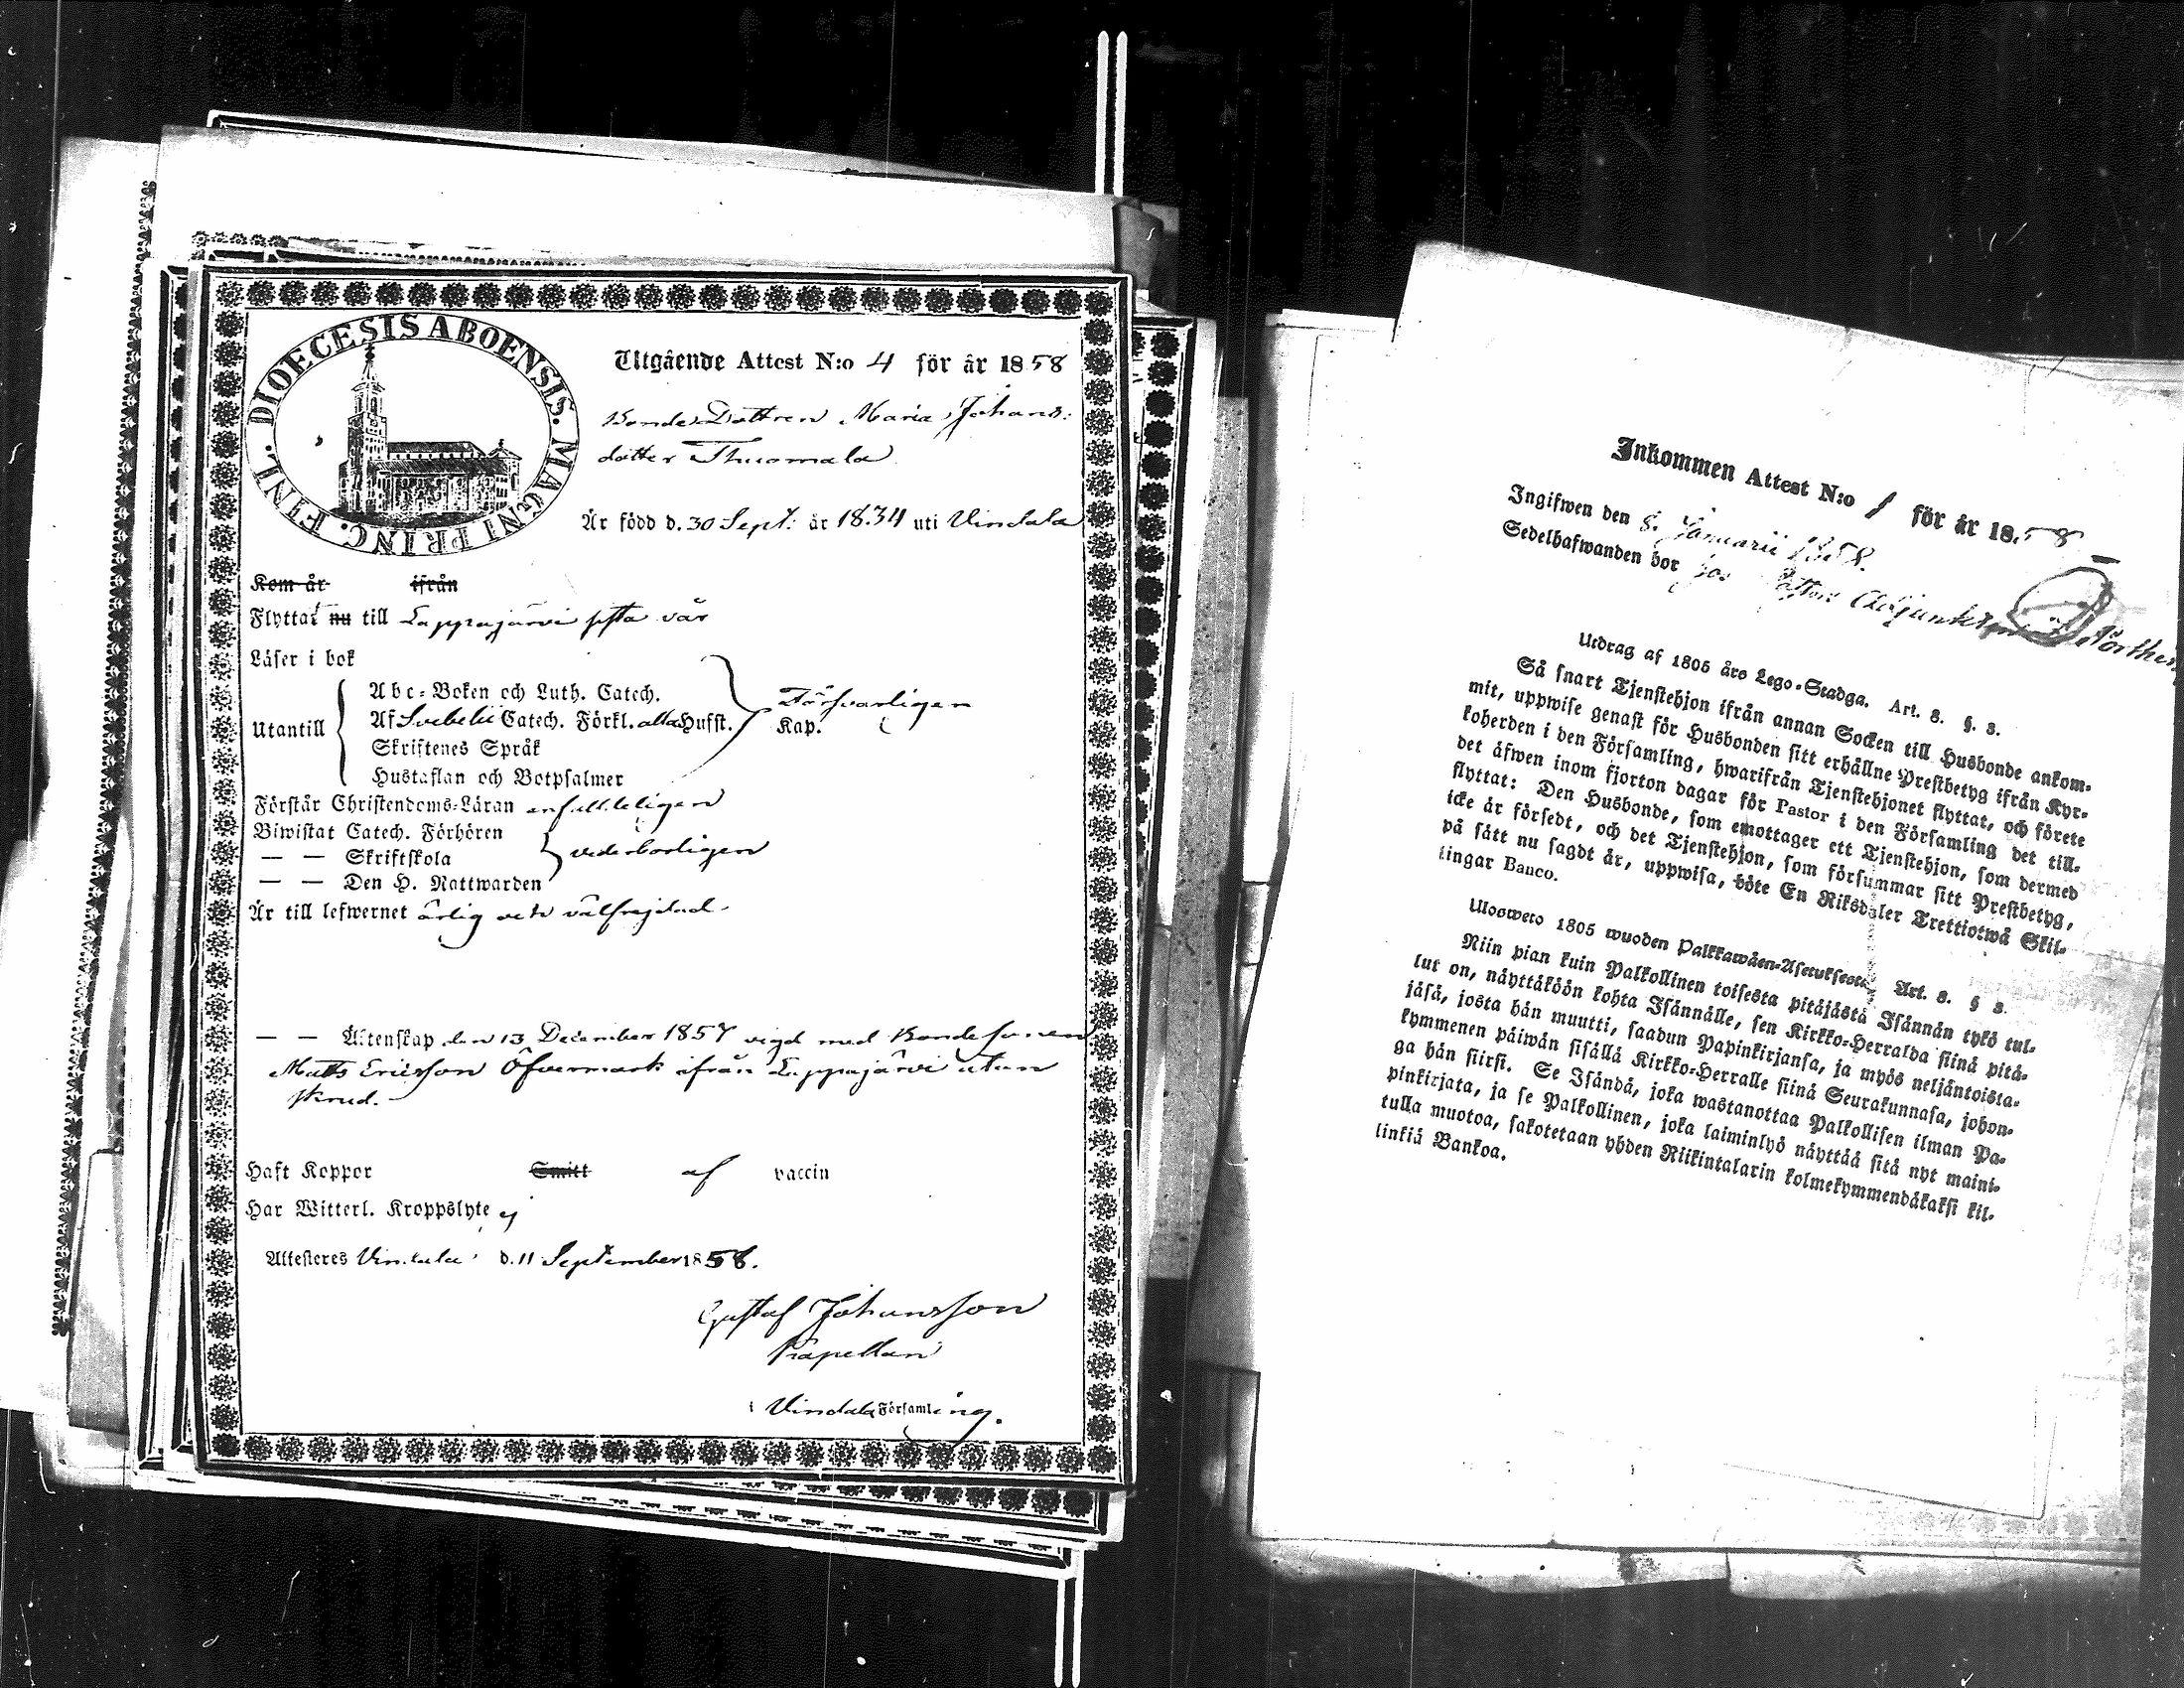 DIOECESIS ABOENSIS. MAGNI PRINC. FINL.
Utgående Attest N:o 4 för år 1858
Bonde Dottren Maria Johans:
dotter Thuomala
Är född d. 30 Sept: år 1834 uti Vindala
Kom år ifrån
Flyttat nu till Lappajärvi sista vår
Läser i bok
Abc-Boken och Luth. Catech.
Försvarligen
Utantill
Af Svebelii Catech. Förkl. alla Hufst. Kap.
Skriftenes Språk
Hustaflan och Botpsalmer
Förstår Christendoms-Läran enfalldeligen
Biwistat Catech. Förhören
— — Skriftskola
vederbörligen
— — Den H. Nattwarden
Är till lefwernet ärlig och välfrejdad.
— — Äktenskap den 13 December 1857 vigd med Bondesonen
Matts Ericsson Öfvermark ifrån Lappajärvi utan
skrud.
Haft Koppor Smitt af vaccin
Har Witterl. Kroppslyte ej
Attesteres Vindala d. 11 September 1858.
Gustaf Johansson
Kapellan
i Vindala Församling.
Inkommen Attest N:o 1 för år 1858
Ingifwen den 8. Januarii 1858.
Sedelhafwanden bor hos Pastors Adjunkten
Utdrag af 1805 års Lego-Stadga. Art. 8. §. 3.
Så snart Tjenstehjon ifrån annan Socken till Husbonde ankom-
mit, uppwise genast för Husbonden sitt erhållne Prestbetyg ifrån Kyr-
koherden i den Församling, hwarifrån Tjenstehjonet flyttat, och förete
det äfwen inom fjorton dagar för Pastor i den Församling det till-
flyttat: Den Husbonde, som emottager ett Tjenstehjon, som dermed
icke är försedt, och det Tjenstehjon, som försummar sitt Prestbetyg,
på sätt nu sagdt är, uppwisa, böte En Riksdaler Trettiotwå Skil-
lingar Banco.
Ulosweto 1805 wuoden Palkkawäen-Asetuksesta, Art. 8. § 3.
Niin pian kuin Palkollinen toisesta pitäjästä Isännän tykö tul-
lut on, näyttäköön kohta Isännälle, sen Kirkko-Herralda siinä pitä-
jäsä, josta hän muutti, saadun Papinkirjansa, ja myös neljäntoista-
kymmenen päiwän sisällä Kirkko-Herralle siinä Seurakunnasa, johon-
ga hän siirsi. Se Isändä, joka wastanottaa Palkollisen ilman Pa-
pinkirjata, ja se Palkollinen, joka laiminlyö näyttää sitä nyt maini-
tulla muotoa, sakotetaan yhden Riikintalarin kolmekymmendäkaksi kil-
linkiä Bankoa.